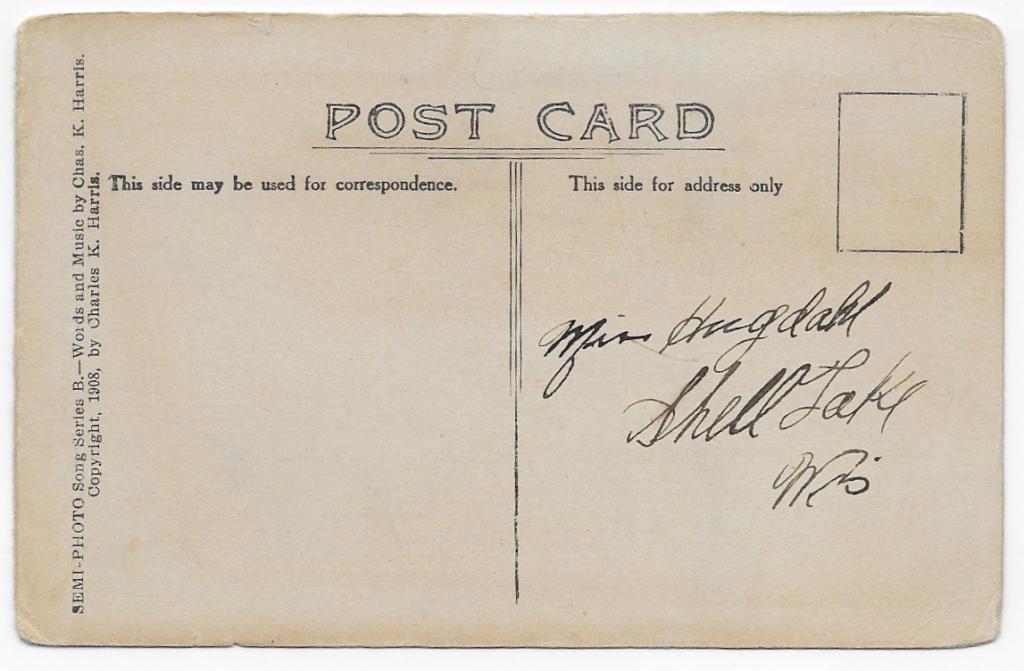 POST CARD
This side may be used for correspondence.
This side for address only
SEMI-PHOTO Song Series B.—Words and Music by Chas. K. Harris.
Copyright, 1908, by Charles K. Harris.
Miss Hugdahl
Shell Lake
Wis